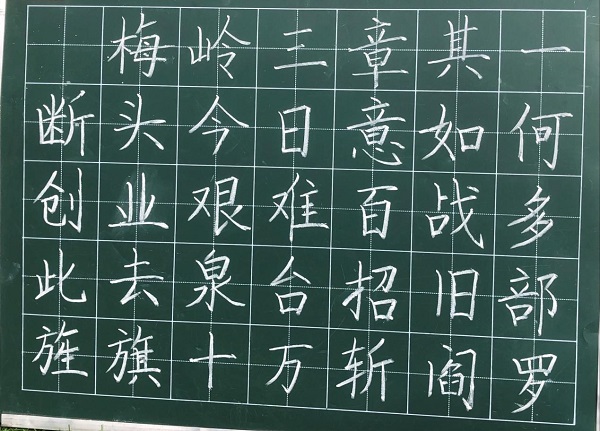 梅岭三章其一
断头今日意如何
创业艰难百战多
此去泉台招旧部
旌旗十万斩阎罗